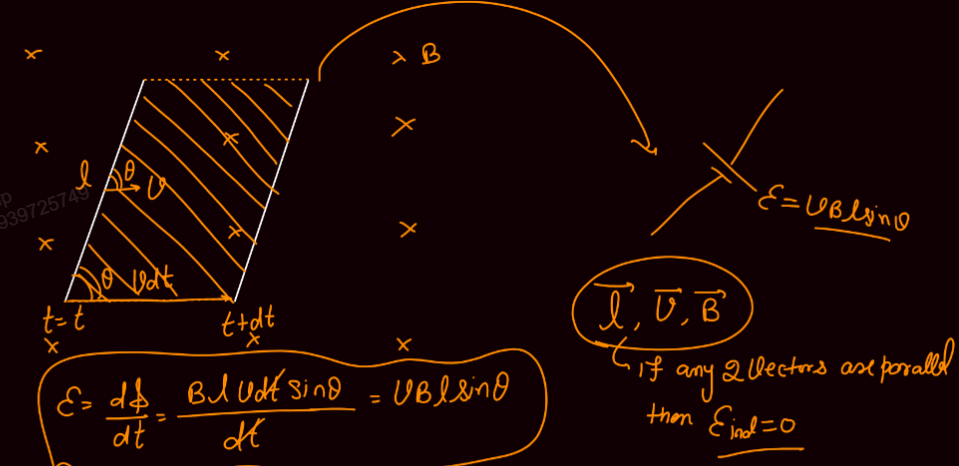 × × × B
× ×
l θ v
939725749
× ×
θ vdt
t=t t+dt
× × ×
ε = dϕ/dt = Bl vdt sinθ/dt = vBlsinθ
ε = vBlsinθ
l⃗, v⃗, B⃗
if any 2 vectors are parallel
then εind = 0